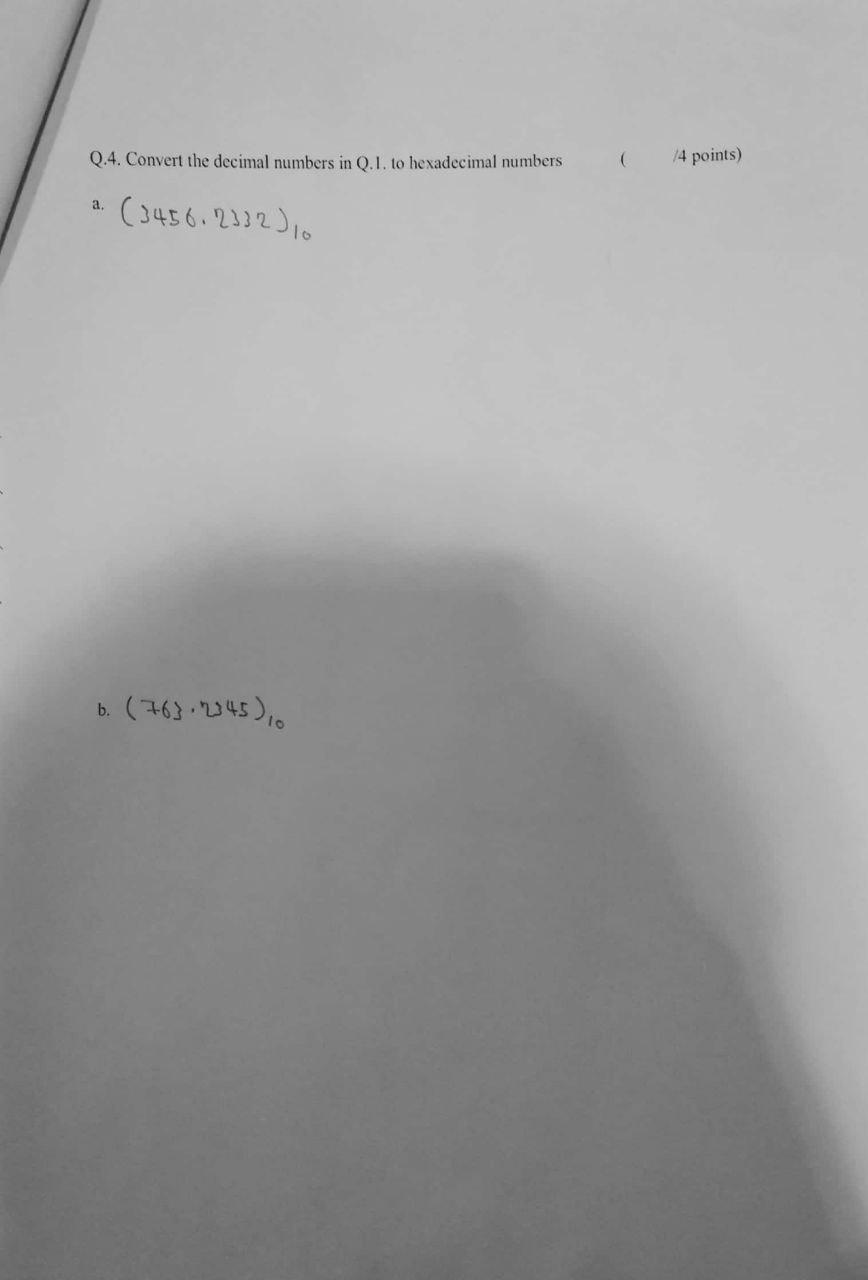 Q.4. Convert the decimal numbers in Q.1. to hexadecimal numbers ( /4 points)
a. (3456.2332)10
b. (763.2345)10